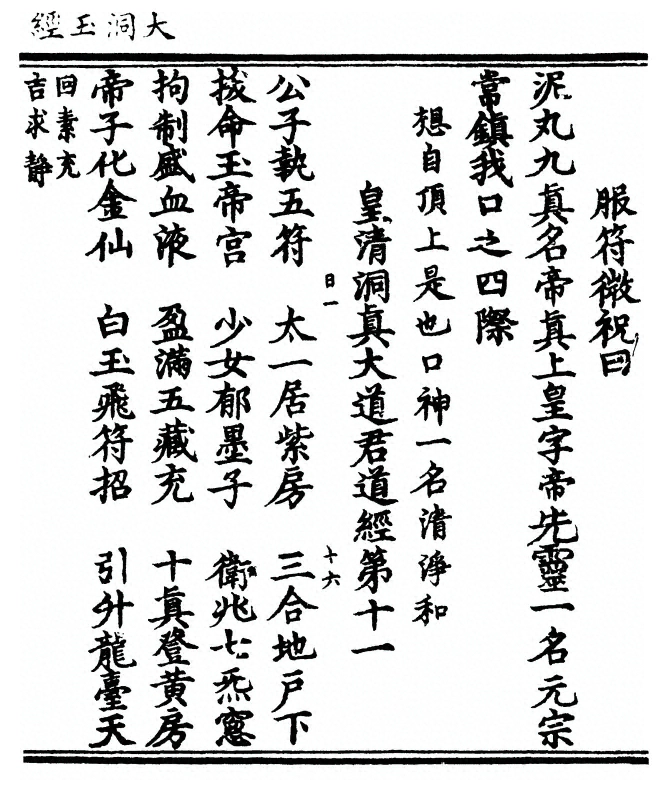 大洞玉經
服符微祝曰
泥丸九真名帝真上皇字帝先靈一名元宗
常鎮我口之四際
想自頂上是也口神一名清淨和
皇清洞真大道君道經第十一
日一
十六
公子執五符 太一居紫房 三合地戶下
拔命玉帝宮 少女郁墨子 衛兆七炁窓
拘制盛血液 盈滿五藏充 十真登黃房
帝子化金仙 白玉飛符招 引升龍臺天
回素充
吉求靜